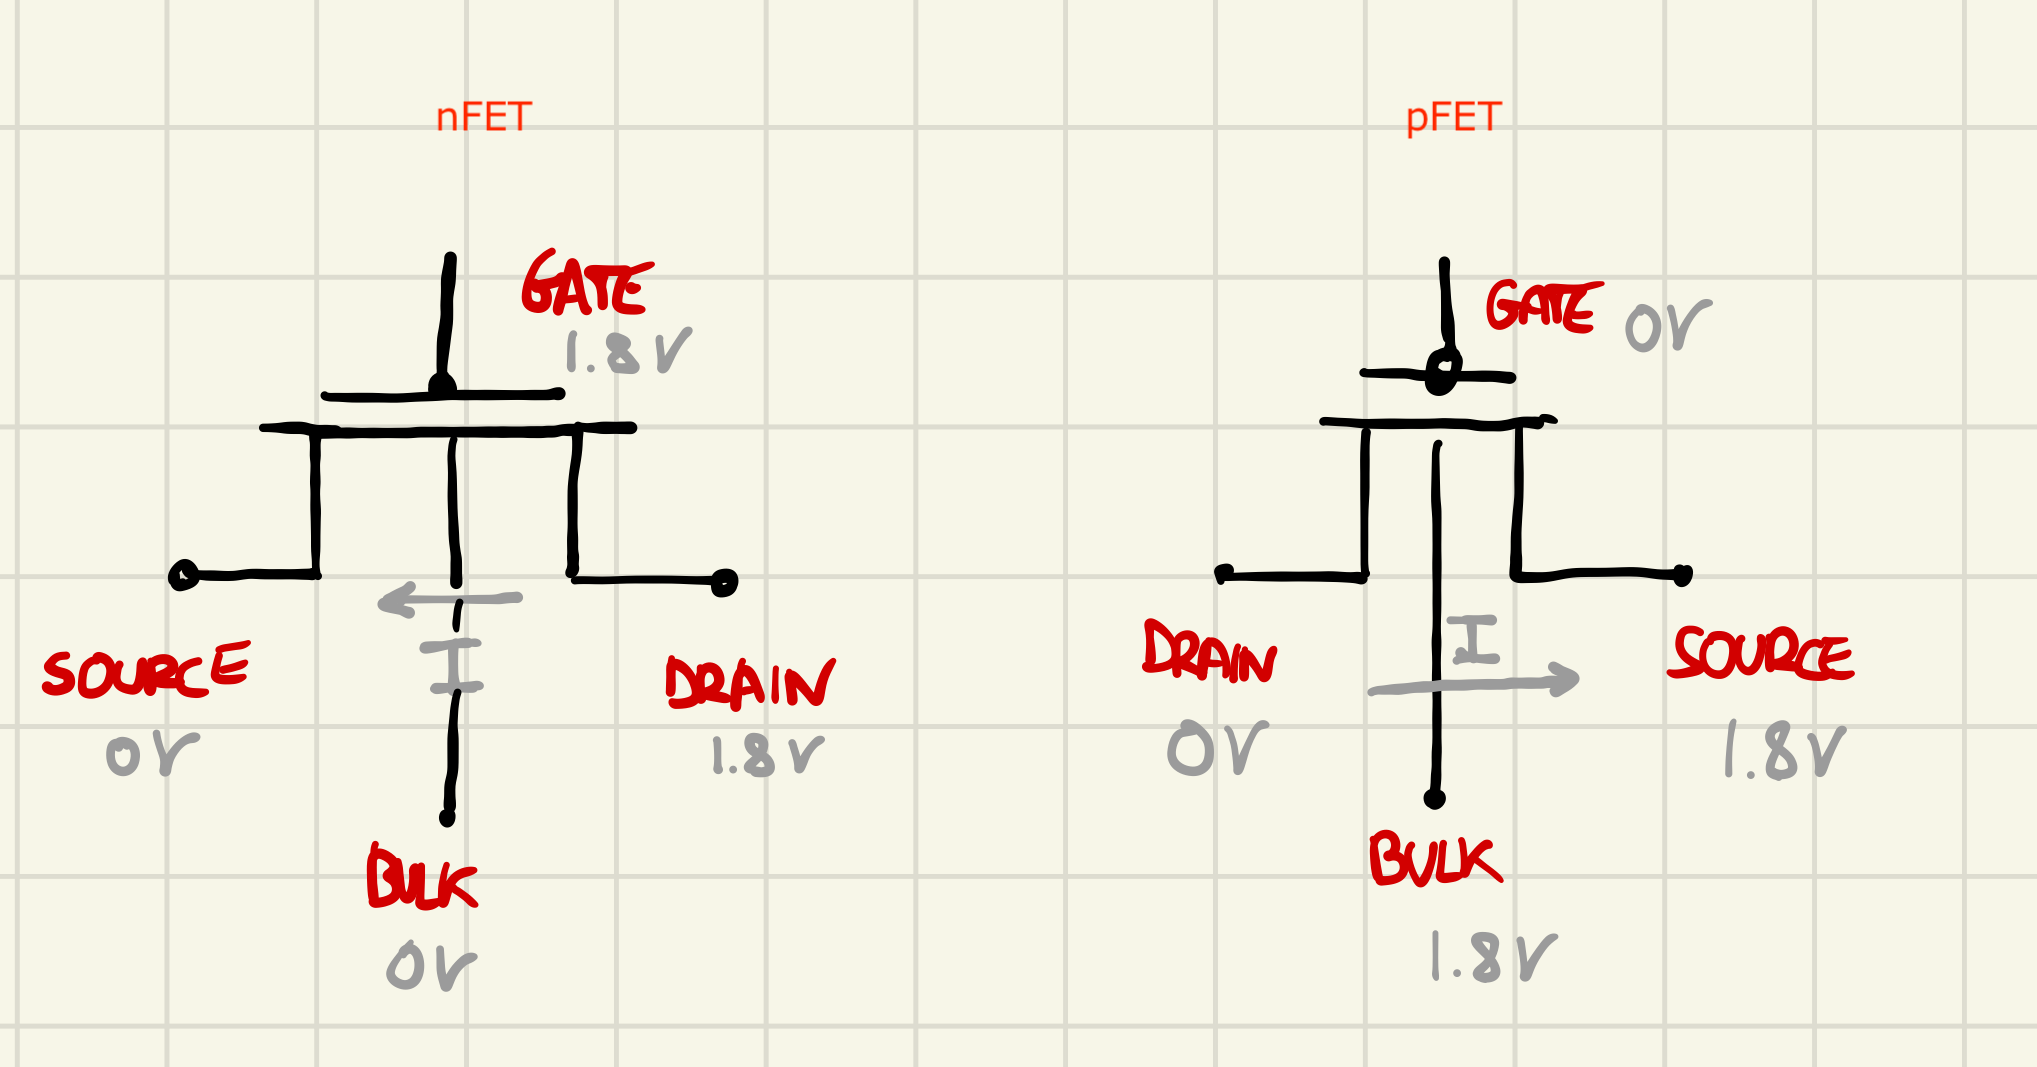 nFET
GATE
1.8V
I
SOURCE
DRAIN
0V
1.8V
BULK
0V
pFET
GATE 0V
I
DRAIN
SOURCE
0V
1.8V
BULK
1.8V